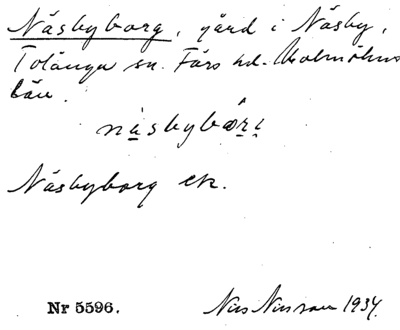 Näsbyborg, gård i Näsby,
Tolånga sn. Färs hd. Malmöhus
län.
Näsbyborg ek.
Nr 5596.
Nils Nilsson 1934.